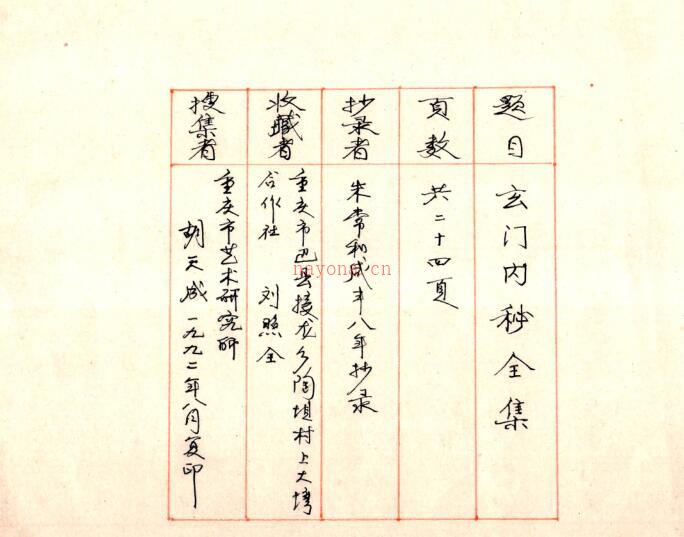 题目
玄门内秘全集
页数
共二十四页
抄录者
朱常和咸丰八年抄录
收臧者
重庆市巴县接龙乡陶坝村上大塆
合作社 刘照全
搜集者
重庆市艺术研究所
胡天成一九九二年八月复印
nayona.cn